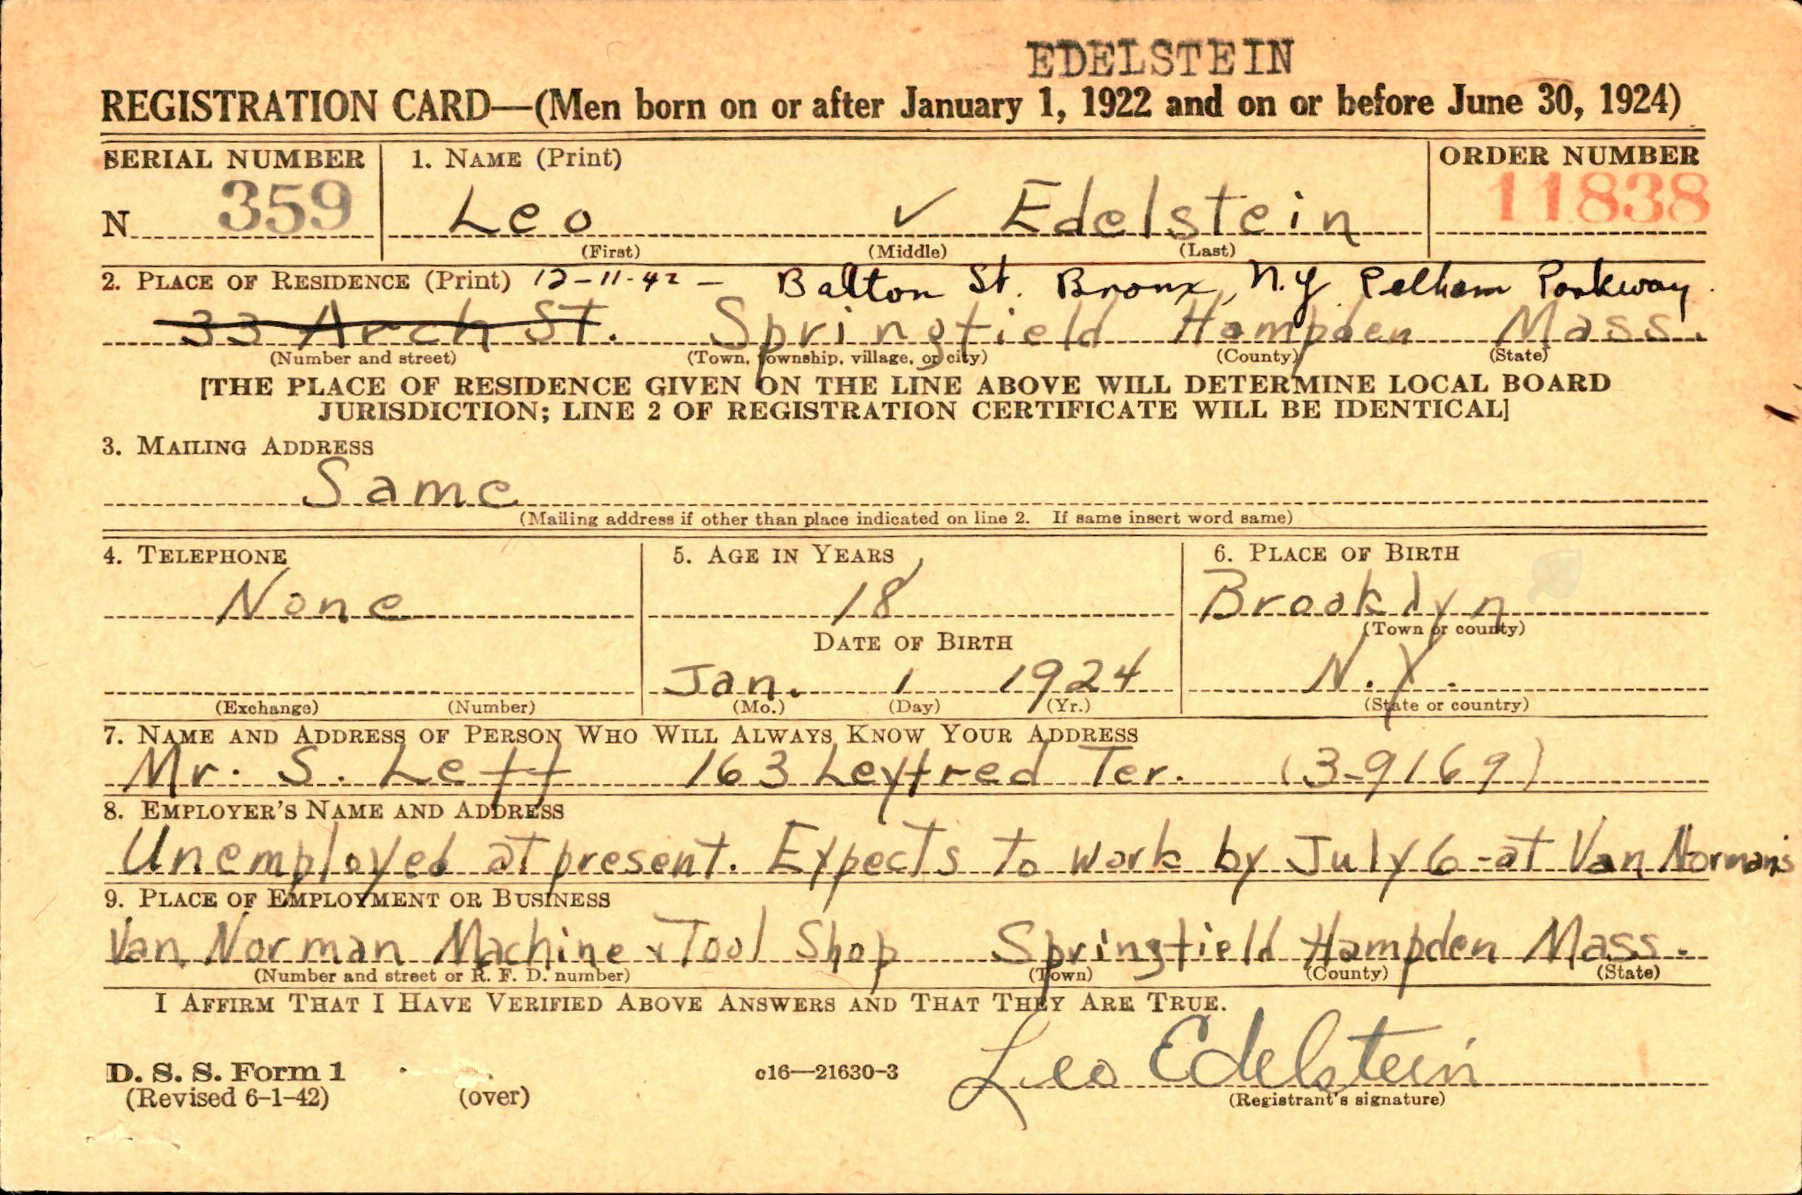 EDELSTEIN
REGISTRATION CARD—(Men born on or after January 1, 1922 and on or before June 30, 1924)
SERIAL NUMBER 1. NAME (Print) ORDER NUMBER
N 359 Leo ✓ Edelstein 11838
(First) (Middle) (Last)
2. PLACE OF RESIDENCE (Print) 12-11-42 - Balton St. Bronx, N.Y. Pelham Parkway
33 Arch St. Springfield Hampden Mass.
(Number and street) (Town, township, village, or city) (County) (State)
[THE PLACE OF RESIDENCE GIVEN ON THE LINE ABOVE WILL DETERMINE LOCAL BOARD
JURISDICTION; LINE 2 OF REGISTRATION CERTIFICATE WILL BE IDENTICAL]
3. MAILING ADDRESS
Same
(Mailing address if other than place indicated on line 2. If same insert word same)
4. TELEPHONE 5. AGE IN YEARS 6. PLACE OF BIRTH
None 18 Brooklyn
(Town or county)
DATE OF BIRTH
Jan. 1 1924 N.Y.
(Exchange) (Number) (Mo.) (Day) (Yr.) (State or country)
7. NAME AND ADDRESS OF PERSON WHO WILL ALWAYS KNOW YOUR ADDRESS
Mr. S. Leff 163 Leyfred Ter. (3-9169)
8. EMPLOYER'S NAME AND ADDRESS
Unemployed at present. Expects to work by July 6-at Van Norman's
9. PLACE OF EMPLOYMENT OR BUSINESS
Van Norman Machine & Tool Shop Springfield Hampden Mass.
(Number and street or R. F. D. number) (Town) (County) (State)
I AFFIRM THAT I HAVE VERIFIED ABOVE ANSWERS AND THAT THEY ARE TRUE.
D. S. S. Form 1 c16—21630-3 Leo Edelstein
(Revised 6-1-42) (over) (Registrant's signature)